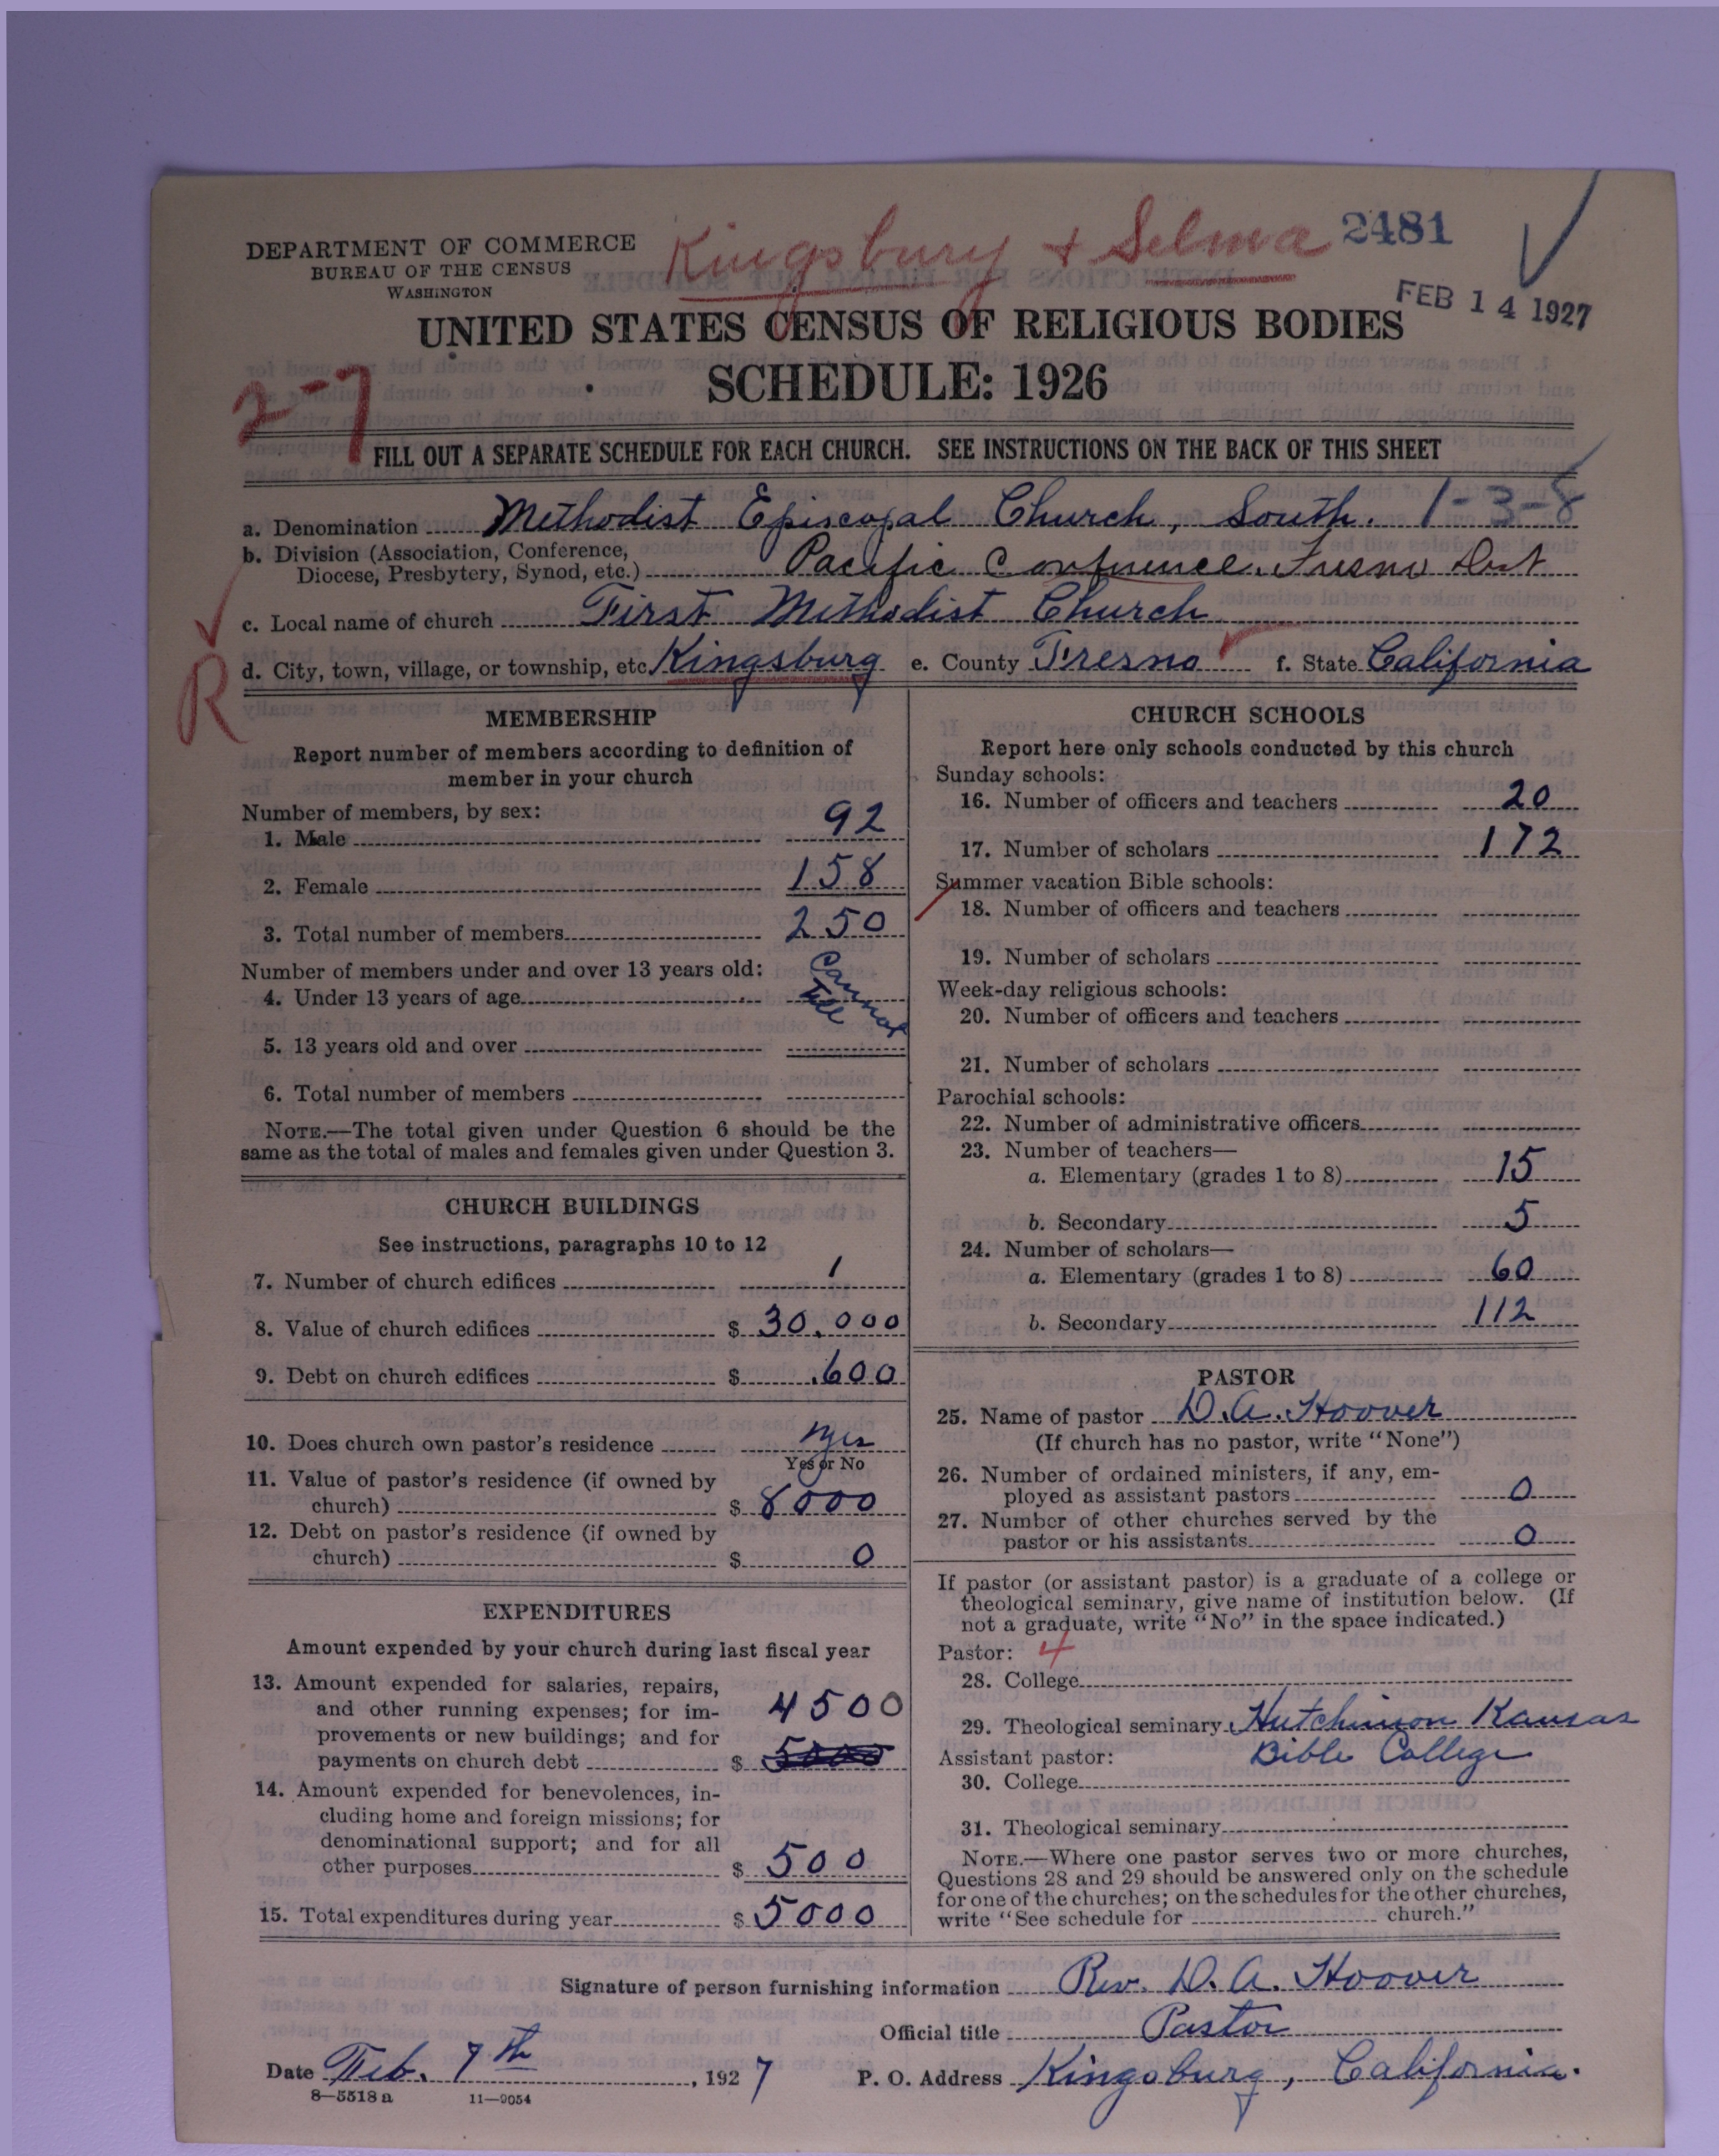 DEPARTMENT OF COMMERCE
BUREAU OF THE CENSUS
WASHINGTON
Kingsbury + Selma
2481
FEB 14 1927
UNITED STATES CENSUS OF RELIGIOUS BODIES
SCHEDULE: 1926
2-7
FILL OUT A SEPARATE SCHEDULE FOR EACH CHURCH. SEE INSTRUCTIONS ON THE BACK OF THIS SHEET
a. Denomination Methodist Episcopal Church, South. 1-3-8
b. Division (Association, Conference,
Diocese, Presbytery, Synod, etc.) Pacific Conference. Fresno Dist
c. Local name of church First Methodist Church
R
d. City, town, village, or township, etc. Kingsburg e. County Fresno f. State California
MEMBERSHIP
Report number of members according to definition of
member in your church
Number of members, by sex:
1. Male 92
2. Female 158
3. Total number of members 250
Number of members under and over 13 years old:
4. Under 13 years of age Cannot
tell
5. 13 years old and over
6. Total number of members
NOTE.—The total given under Question 6 should be the
same as the total of males and females given under Question 3.
CHURCH BUILDINGS
See instructions, paragraphs 10 to 12
7. Number of church edifices 1
8. Value of church edifices $ 30.000
9. Debt on church edifices $ .600
10. Does church own pastor's residence yes
Yes or No
11. Value of pastor's residence (if owned by
church) $ 8000
12. Debt on pastor's residence (if owned by
church) $ 0
EXPENDITURES
Amount expended by your church during last fiscal year
13. Amount expended for salaries, repairs,
and other running expenses; for im- 4500
provements or new buildings; and for
payments on church debt $ 5000
14. Amount expended for benevolences, in-
cluding home and foreign missions; for
denominational support; and for all
other purposes $ 500
15. Total expenditures during year $ 5000
CHURCH SCHOOLS
Report here only schools conducted by this church
Sunday schools:
16. Number of officers and teachers 20
17. Number of scholars 172
Summer vacation Bible schools:
18. Number of officers and teachers
19. Number of scholars
Week-day religious schools:
20. Number of officers and teachers
21. Number of scholars
Parochial schools:
22. Number of administrative officers
23. Number of teachers—
a. Elementary (grades 1 to 8) 15
b. Secondary 5
24. Number of scholars—
a. Elementary (grades 1 to 8) 60
b. Secondary 112
PASTOR
25. Name of pastor D. A. Hoover
(If church has no pastor, write "None")
26. Number of ordained ministers, if any, em-
ployed as assistant pastors 0
27. Number of other churches served by the
pastor or his assistants 0
If pastor (or assistant pastor) is a graduate of a college or
theological seminary, give name of institution below. (If
not a graduate, write "No" in the space indicated.)
Pastor: 4
28. College
29. Theological seminary Hutchinson Kansas
Assistant pastor: Bible College
30. College
31. Theological seminary
NOTE.—Where one pastor serves two or more churches,
Questions 28 and 29 should be answered only on the schedule
for one of the churches; on the schedules for the other churches,
write "See schedule for church."
Signature of person furnishing information Rev. D. A. Hoover
Official title Pastor
Date Feb. 7th, 1927 P. O. Address Kingsburg, California.
8—5518 a 11—9054